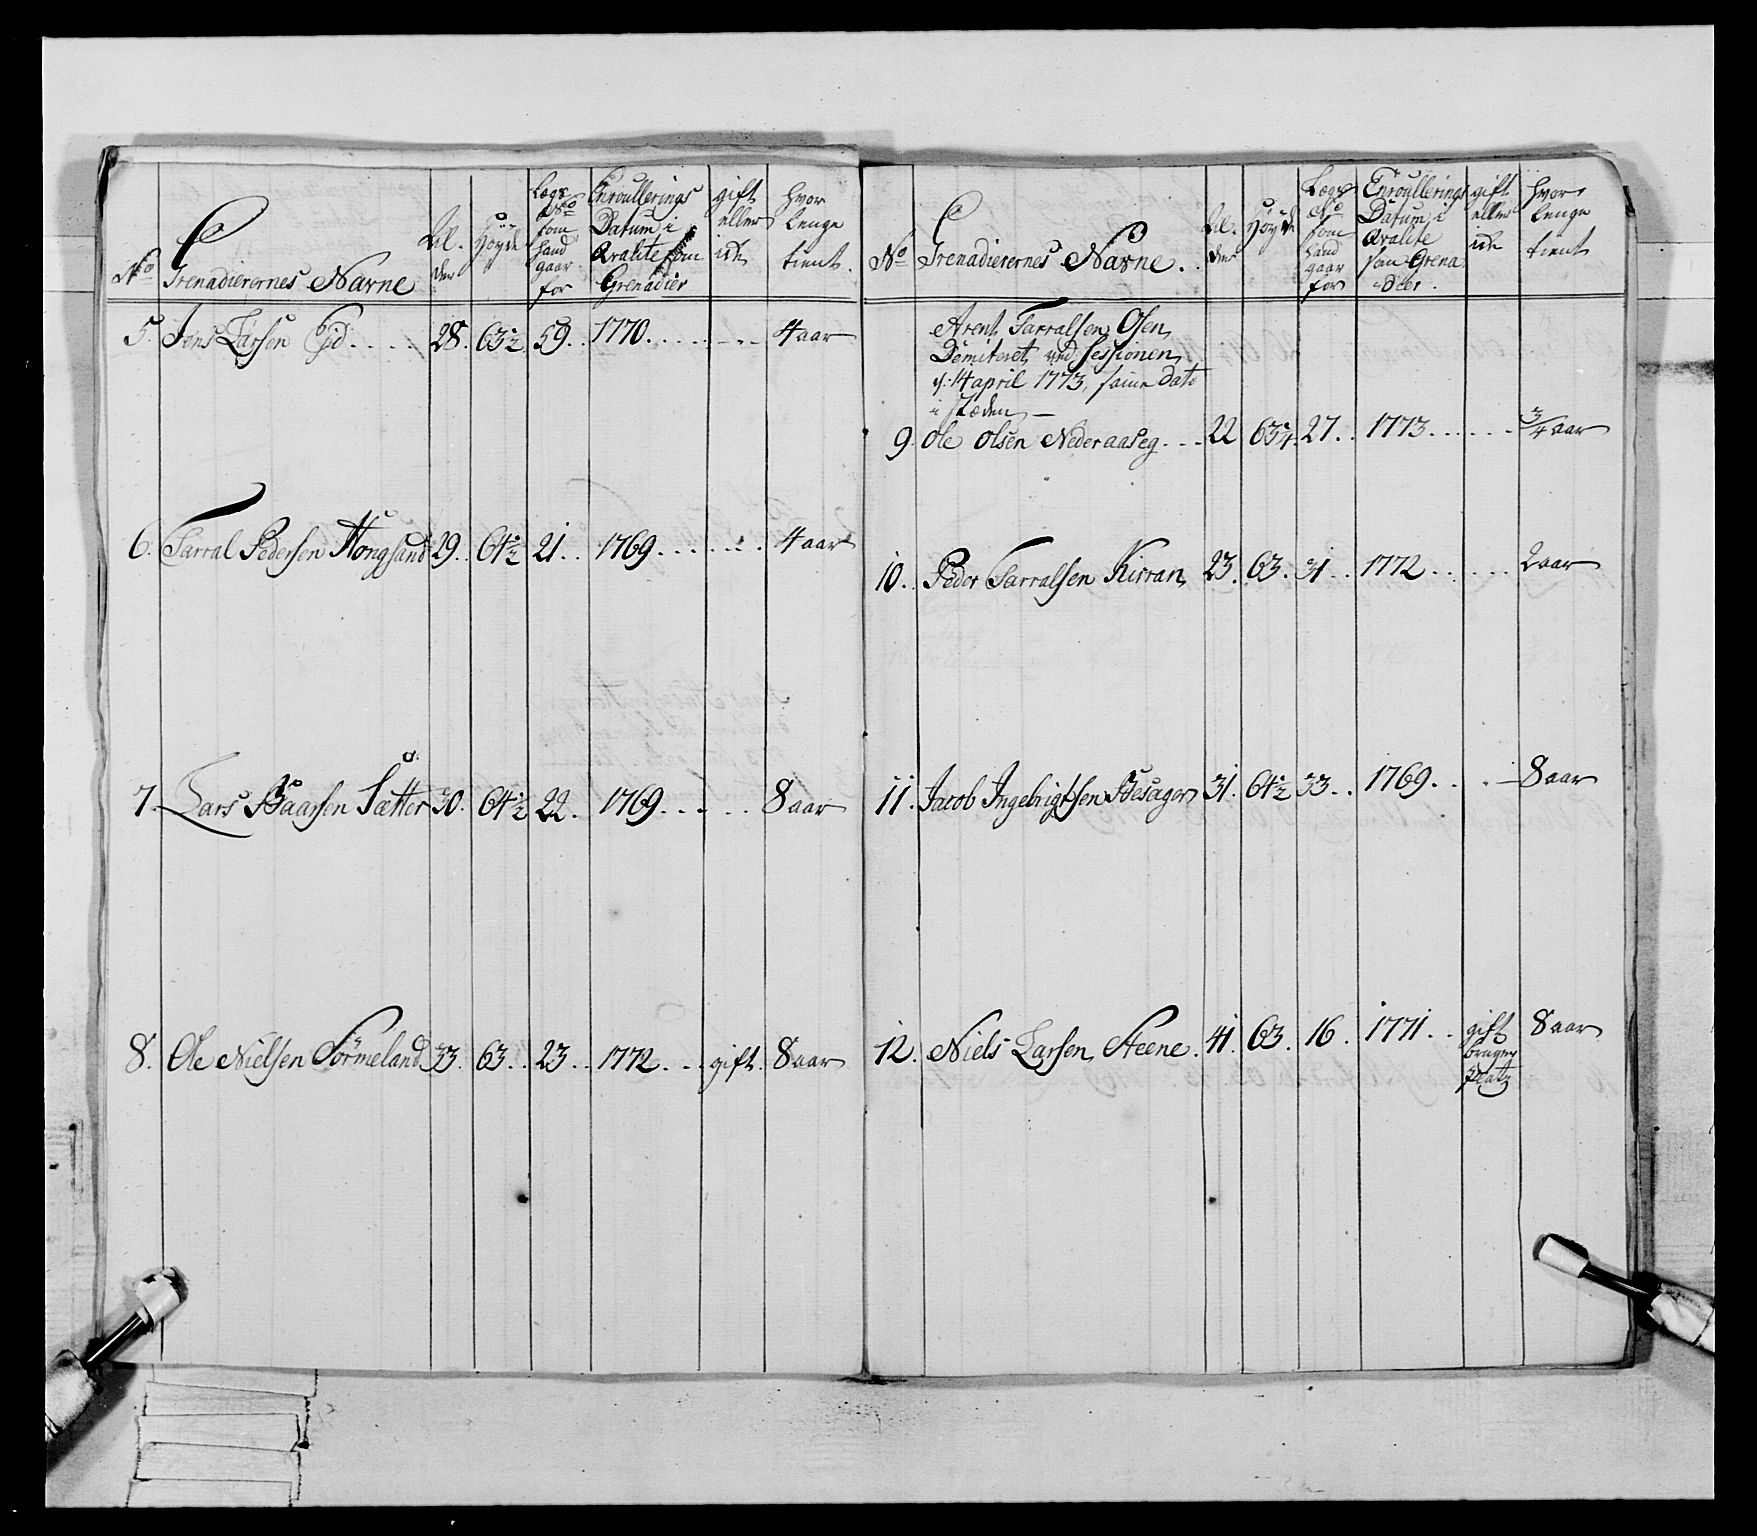 No Grenadierernes Navne Al- der Höyde Lægs No som hand gaar for Enroullerings Datum i Qvalite som Grenadier gift eller ick hvor lenge tient.
5. Jens Larsen Eid.... 28. 63½ 59.. 1770....... 4 aar
6. Tarral Pedersen Hongsand 29. 64½ 21.. 1769...... 4 aar
7. Lars Baarsen Sætter 30. 64½ 22. 1769..... 8 aar
8. Ole Nielsen Sörmeland 33. 63.. 23.. 1772... gift. 8 aar
No Grenadierernes Navne. Al- der Höyde Lægs No som hand gaar for Enroullerings Datum i Qvalite som Grena- dier. gift eller ick hvor lenge tient
Arent Tarralsen Osen
Dimiteret ved Sessionen
d: 14 april 1773, samme dato
i stæden —
9. Ole Olsen Nederaaseg... 22 63¼. 27.. 1773...... ¾ aar
10.. Peder Tarralsen Kirran 23. 63. 31.. 1772..... 2 aar
11. Jacob Ingebrigtsen Besager 31. 64½ 33.. 1769.... 8 aar
12. Niels Larsen Steene. 41. 63. 16. 1771.. gift 8 aar
bruger
platz